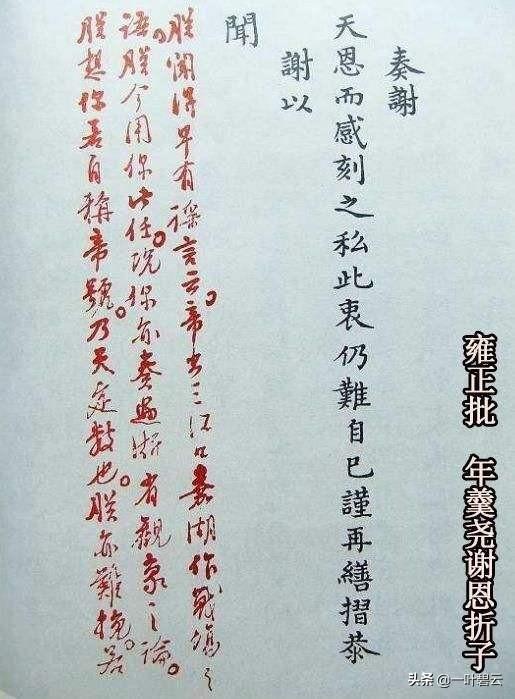 奏謝
天恩而感刻之私此衷仍難自已謹再繕摺恭
謝以
聞
朕聞得早有謠言云帝出三江口嘉湖作戰塲之
語朕今用你此任况你亦奏過浙省觀象之論
朕想你若自稱帝號乃天定數也朕亦難挽若
雍正批 年羹尧谢恩折子
头条 @一叶碧云